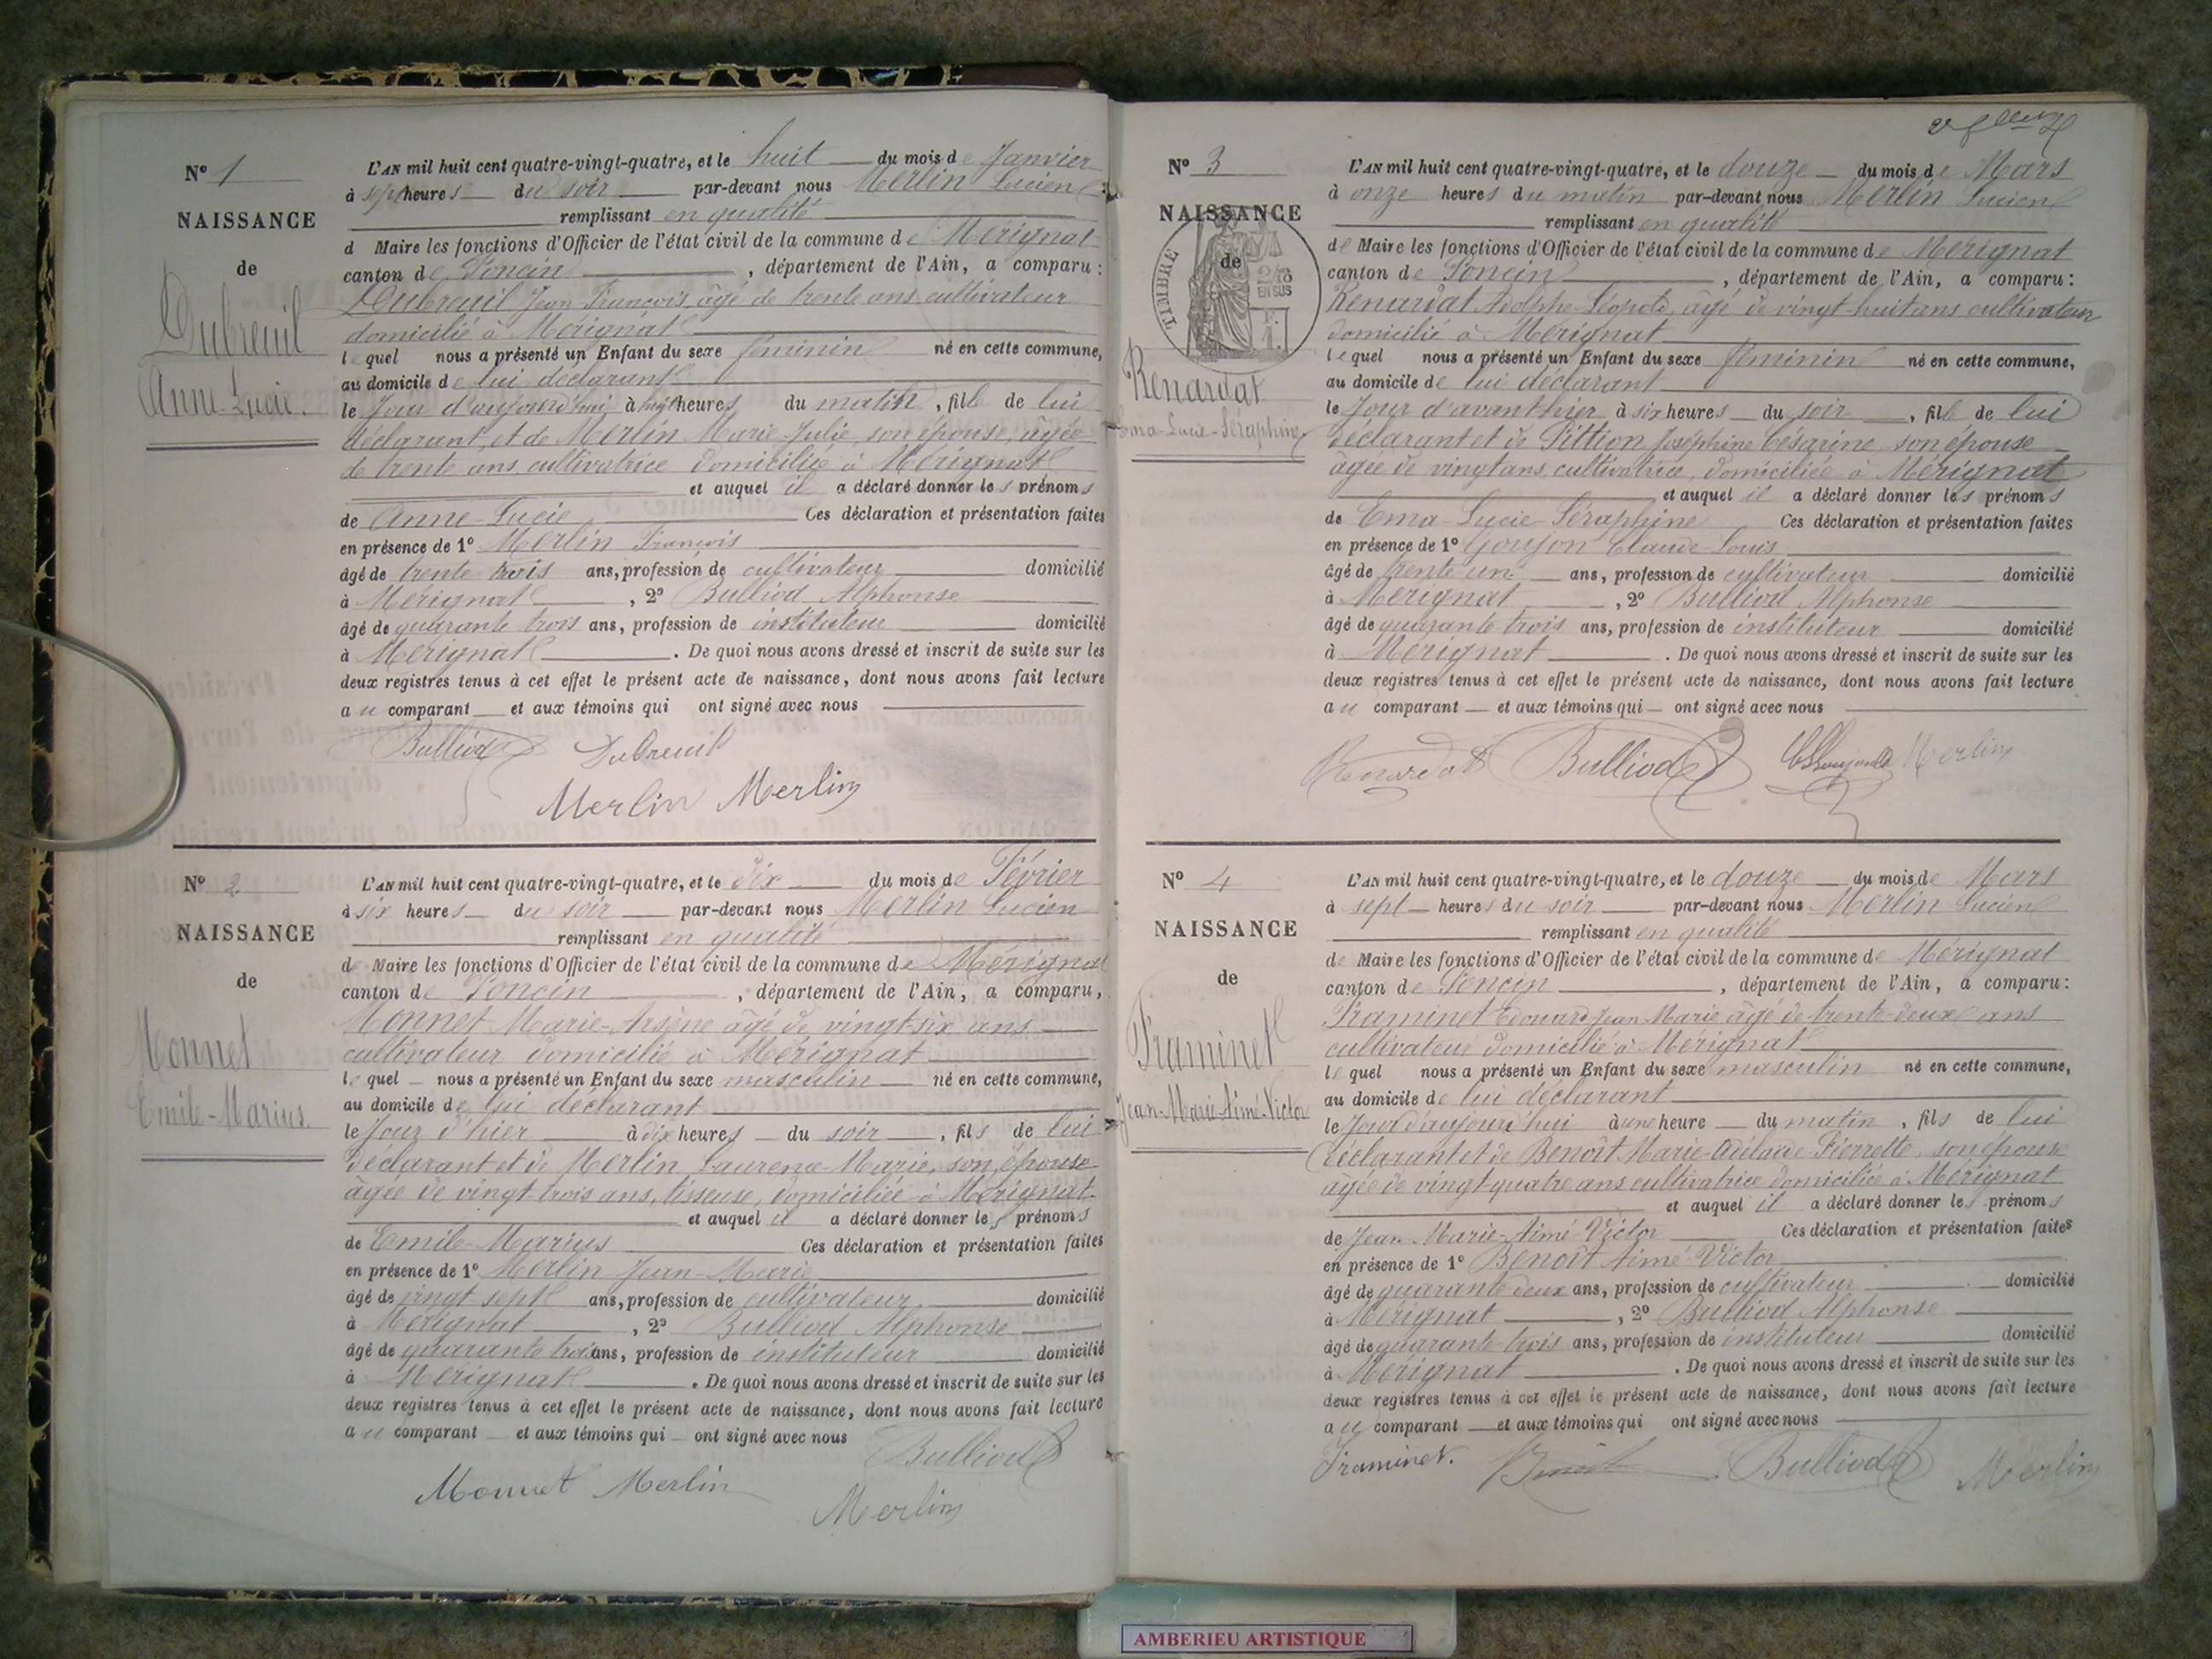 N° 1
NAISSANCE
de
Dubreuil
Anne-Lucie.
L'AN mil huit cent quatre-vingt-quatre, et le huit du mois de Janvier
à sept heures du soir par-devant nous Merlin Lucien
remplissant en qualité
d Maire les fonctions d'Officier de l'état civil de la commune de Mérignat
canton de Poncin, département de l'Ain, a comparu :
Dubreuil Jean François âgé de trente ans cultivateur
domicilié à Mérignat
lequel nous a présenté un Enfant du sexe féminin né en cette commune,
au domicile de lui déclarant
le Jour d'aujourd'hui à heures du matin, fille de lui
déclarant, et de Merlin Marie Julie, son épouse, âgée
de trente ans, cultivatrice domiciliée à Mérignat
et auquel il a déclaré donner les prénoms
de Anne-Lucie Ces déclaration et présentation faites
en présence de 1° Merlin François
âgé de trente trois ans, profession de cultivateur domicilié
à Mérignat, 2° Bulliod Alphonse
âgé de quarante trois ans, profession de instituteur domicilié
à Mérignat. De quoi nous avons dressé et inscrit de suite sur les
deux registres tenus à cet effet le présent acte de naissance, dont nous avons fait lecture
au comparant et aux témoins qui ont signé avec nous
Bulliod Dubreuil
Merlin Merlin
N° 2
NAISSANCE
de
Monnet
Emile-Marius.
L'AN mil huit cent quatre-vingt-quatre, et le dix du mois de Février
à six heures du soir par-devant nous Merlin Lucien
remplissant en qualité
de Maire les fonctions d'Officier de l'état civil de la commune de Mérignat
canton de Poncin, département de l'Ain, a comparu,
Monnet Marie-Arsène âgé de vingt-six ans
cultivateur domicilié à Mérignat
lequel nous a présenté un Enfant du sexe masculin né en cette commune,
au domicile de lui déclarant
le Jour d'hier à dix heures du soir, fils de lui
déclarant et de Merlin Laurence-Marie, son épouse
âgée de vingt trois ans, tisseuse, domiciliée à Mérignat
et auquel il a déclaré donner les prénoms
de Emile-Marius Ces déclaration et présentation faites
en présence de 1° Merlin Jean-Marie
âgé de vingt sept ans, profession de cultivateur domicilié
à Mérignat, 2° Bulliod Alphonse
âgé de quarante trois ans, profession de instituteur domicilié
à Mérignat. De quoi nous avons dressé et inscrit de suite sur les
deux registres tenus à cet effet le présent acte de naissance, dont nous avons fait lecture
au comparant et aux témoins qui ont signé avec nous
Bulliod
Monnet Merlin
Merlin
N° 3
NAISSANCE
TIMBRE
de
EN SUS
Renardat
Ema-Lucie-Séraphine
L'AN mil huit cent quatre-vingt-quatre, et le douze du mois de Mars
à onze heures du matin par-devant nous Merlin Lucien
remplissant en qualité
de Maire les fonctions d'Officier de l'état civil de la commune de Mérignat
canton de Poncin, département de l'Ain, a comparu :
Renardat Adolphe-Léopold, âgé de vingt-huit ans cultivateur
domicilié à Mérignat
lequel nous a présenté un Enfant du sexe féminin né en cette commune,
au domicile de lui déclarant
le Jour d'avant hier à six heures du soir, fille de lui
déclarant et de Pittion Joséphine Césarine, son épouse
âgée de vingt ans, cultivatrice, domiciliée à Mérignat
et auquel il a déclaré donner les prénoms
de Ema-Lucie-Séraphine Ces déclaration et présentation faites
en présence de 1° Goujon Claude-Louis
âgé de trente un ans, profession de cultivateur domicilié
à Mérignat, 2° Bulliod Alphonse
âgé de quarante trois ans, profession de instituteur domicilié
à Mérignat. De quoi nous avons dressé et inscrit de suite sur les
deux registres tenus à cet effet le présent acte de naissance, dont nous avons fait lecture
au comparant et aux témoins qui ont signé avec nous
Renardat Bulliod Merlin
N° 4
NAISSANCE
de
Framinet
Jean-Marie-Aimé-Victor
L'AN mil huit cent quatre-vingt-quatre, et le douze du mois de Mars
à sept heures du soir par-devant nous Merlin Lucien
remplissant en qualité
de Maire les fonctions d'Officier de l'état civil de la commune de Mérignat
canton de Poncin, département de l'Ain, a comparu :
Framinet Edouard Jean Marie âgé de trente-deux ans
cultivateur domicilié à Mérignat
lequel nous a présenté un Enfant du sexe masculin né en cette commune,
au domicile de lui déclarant
le Jour d'aujourd'hui à une heure du matin, fils de lui
déclarant et de Benoît Marie-Adélaïde Pierrette, son épouse
âgée de vingt quatre ans cultivatrice domiciliée à Mérignat
et auquel il a déclaré donner les prénoms
de Jean-Marie-Aimé-Victor Ces déclaration et présentation faites
en présence de 1° Benoît Aimé-Victor
âgé de quarante deux ans, profession de cultivateur domicilié
à Mérignat, 2° Bulliod Alphonse
âgé de quarante trois ans, profession de instituteur domicilié
à Mérignat. De quoi nous avons dressé et inscrit de suite sur les
deux registres tenus à cet effet le présent acte de naissance, dont nous avons fait lecture
au comparant et aux témoins qui ont signé avec nous
Framinet. Benoît Bulliod Merlin
AMBERIEU ARTISTIQUE